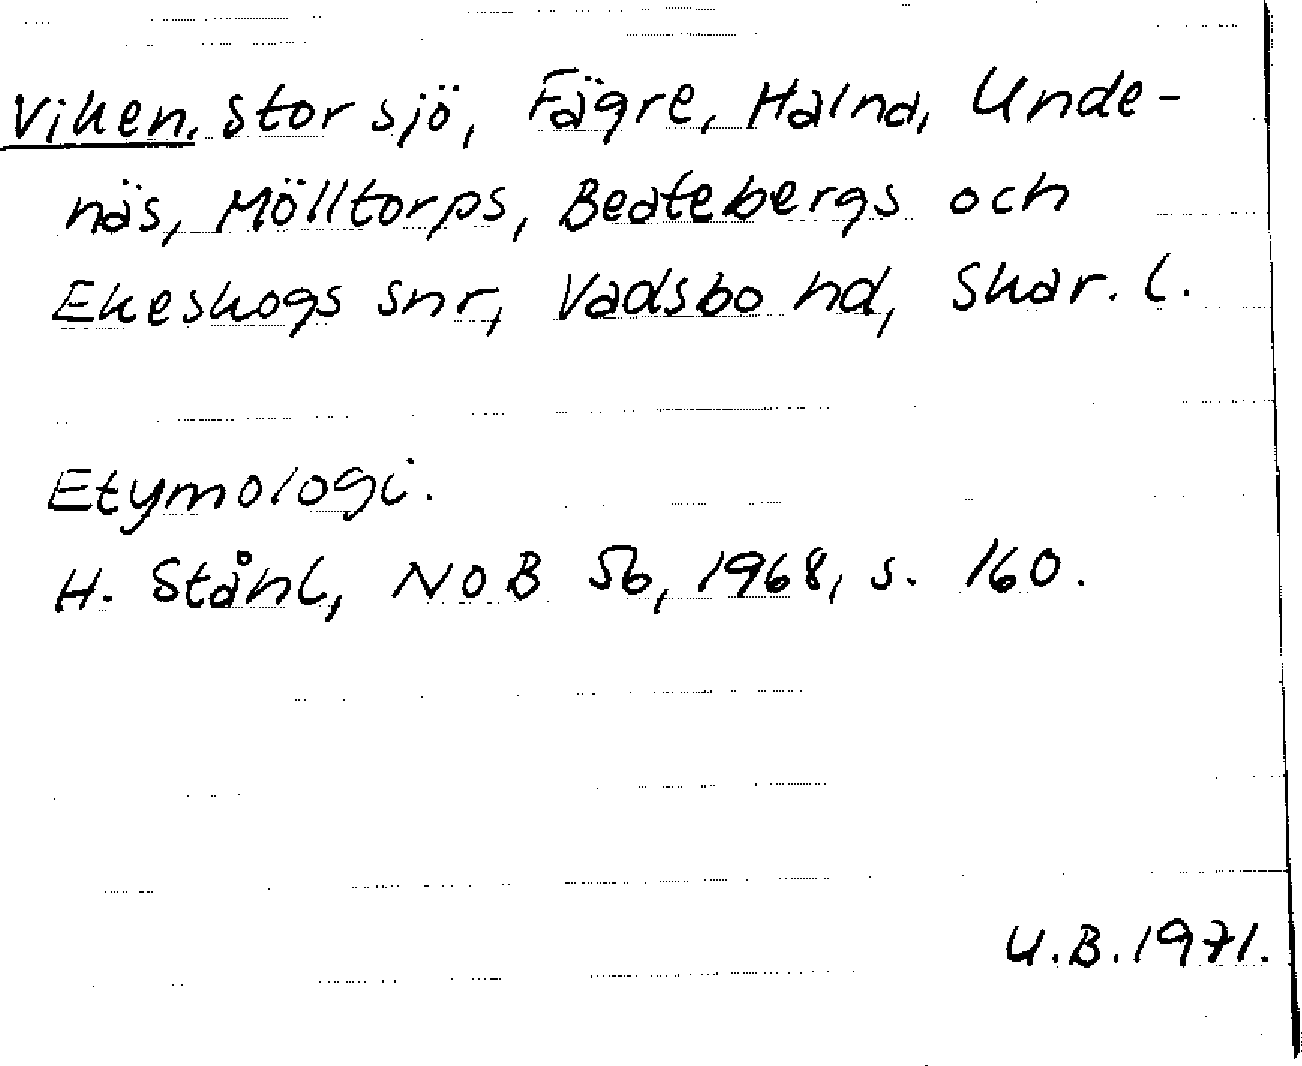 Viken, stor sjö, Fägre, Halna, Unde-
näs, Mölltorps, Beatebergs och
Ekeskogs snr, Vadsbo hd, Skar. l.
Etymologi.
H. Ståhl, NOB 56, 1968, s. 160.
U.B. 1971.